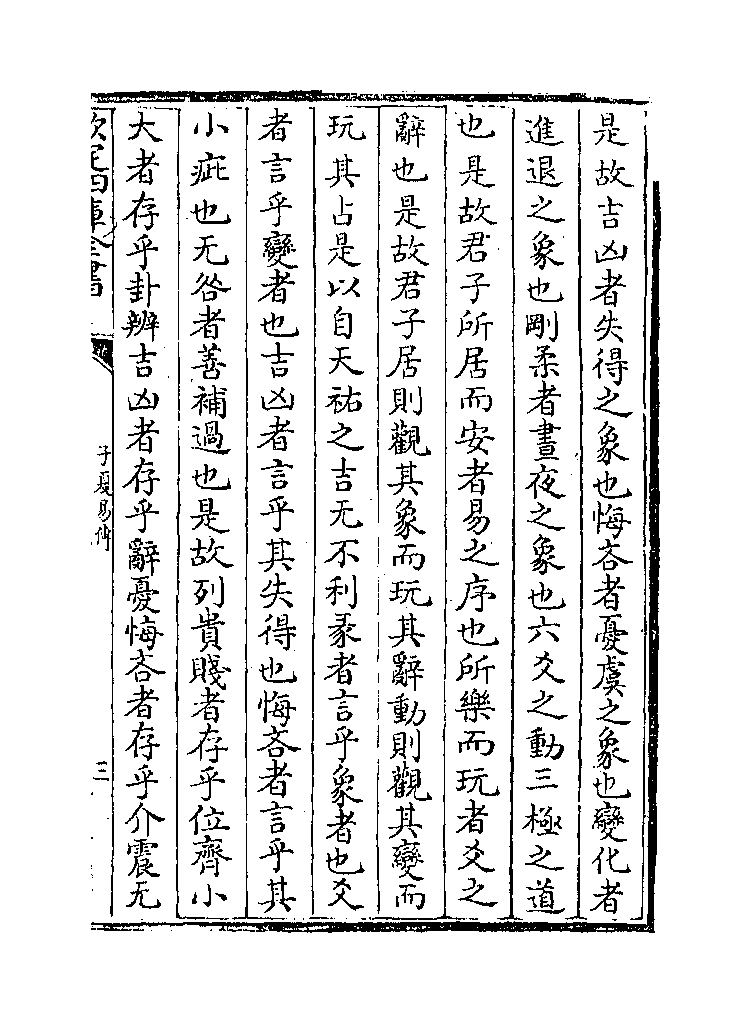 是故吉凶者失得之象也悔吝者憂虞之象也變化者
進退之象也剛柔者晝夜之象也六爻之動三極之道
也是故君子所居而安者易之序也所樂而玩者爻之
辭也是故君子居則觀其象而玩其辭動則觀其變而
玩其占是以自天祐之吉无不利彖者言乎象者也爻
者言乎變者也吉凶者言乎其失得也悔吝者言乎其
小疵也无咎者善補過也是故列貴賤者存乎位齊小
大者存乎卦辨吉凶者存乎辭憂悔吝者存乎介震无
欽定四庫全書
子夏易傳
三